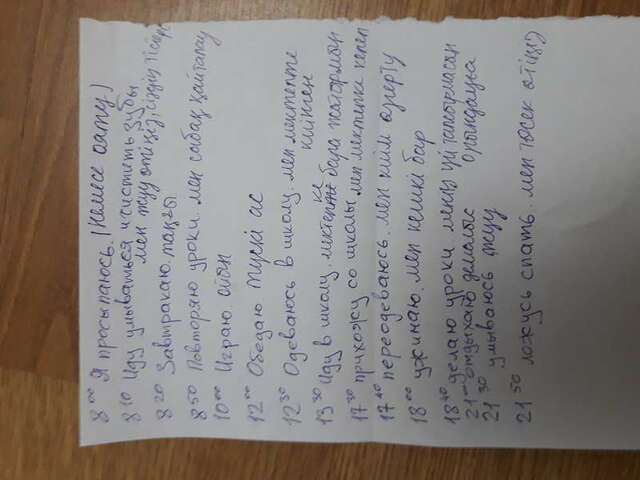 8 00 Я просыпаюсь. (Немесе оату)
8 10 Иду умываться и чистить зубы
мен жуу өтіңіз, сіздің тісіңіз
8 20 Завтракаю. таңғы
8 50 Повторяю уроки. мен сабақ қайталау
10 00 Играю. ойын
12 00 Обедаю түскі ас
12 30 Одеваюсь в школу. мен мектепте
киінген
13 30 Иду в школу. мектепке бара жатормон
17 30 прихожу со школы. мен мектепке келеп
17 40 переодеваюсь. мен киім өзгерту
18 00 ужинаю. мен кешкі бар
18 40 делаю уроки. менің үй тапсырмасын
орындауға
21 00 отдыхаю демалыс
21 30 умываюсь жуу
21 50 ложусь спать. мен төсек өтіңіз